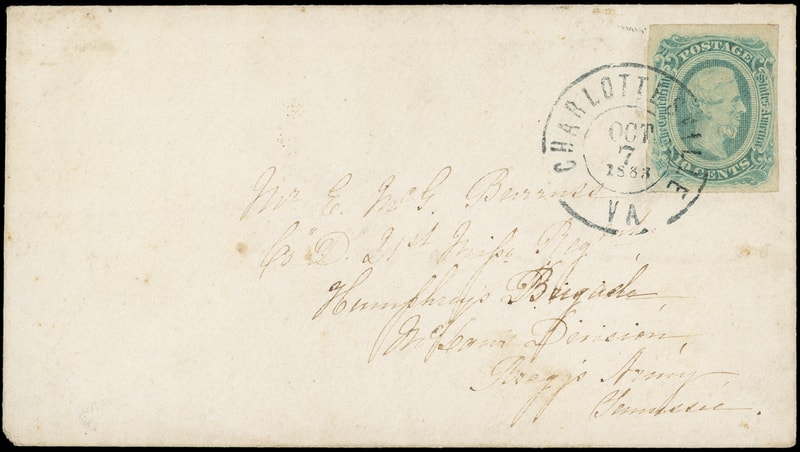 POSTAGE
The Confederate States of America
10 CENTS
CHARLOTTESVILLE
OCT
7
1863
VA
Mr E. McG. Burruss
Co "D" 21st Miss. Regt.,
Humphreys Brigade,
McLaws Division,
Bragg's Army,
Tennessee.